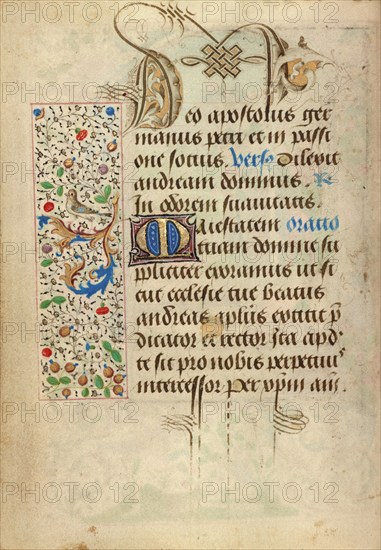 Deo apostolus ger
manus petri et in passi
one socius. Vers᷒ Dilexit
andream dominus. R
In odorem suauitatis.
Maiestatem Oratio
tuam domine su
ppliciter exoramus ut si
cut ecclesie tue beatus
andreas apl̄us extitit p̄
dicator et rector Ita apd̄
te sit pro nobis perpetuus
intercessor Per xp̄m am̄
PHOTO12